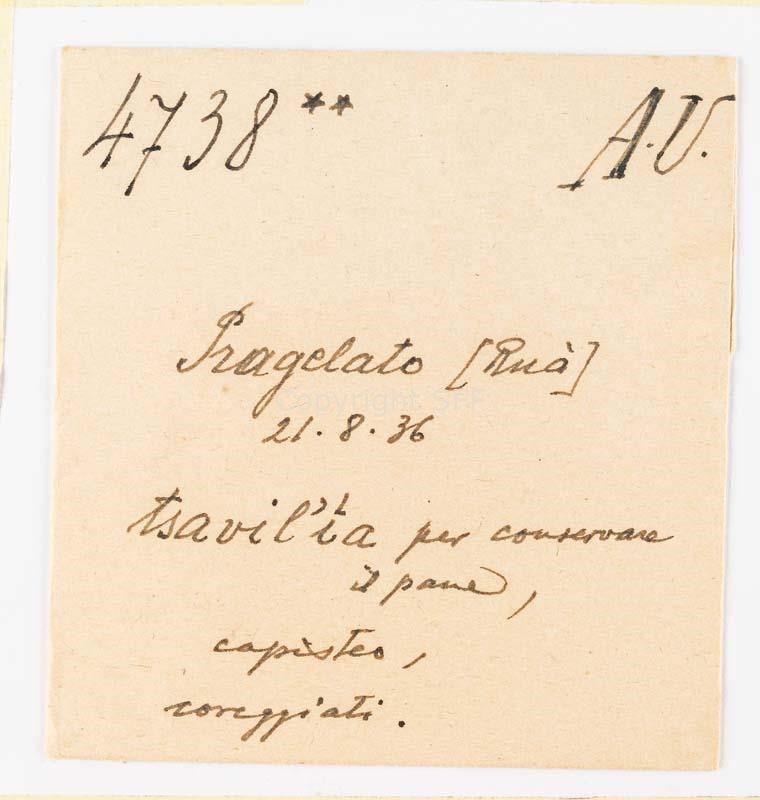 4738 ** A.V.
Pragelato [Ruà]
Copyright SFF
21.8.36
tsavil'ìa per conservare
il pane,
capisteo,
coreggiati.